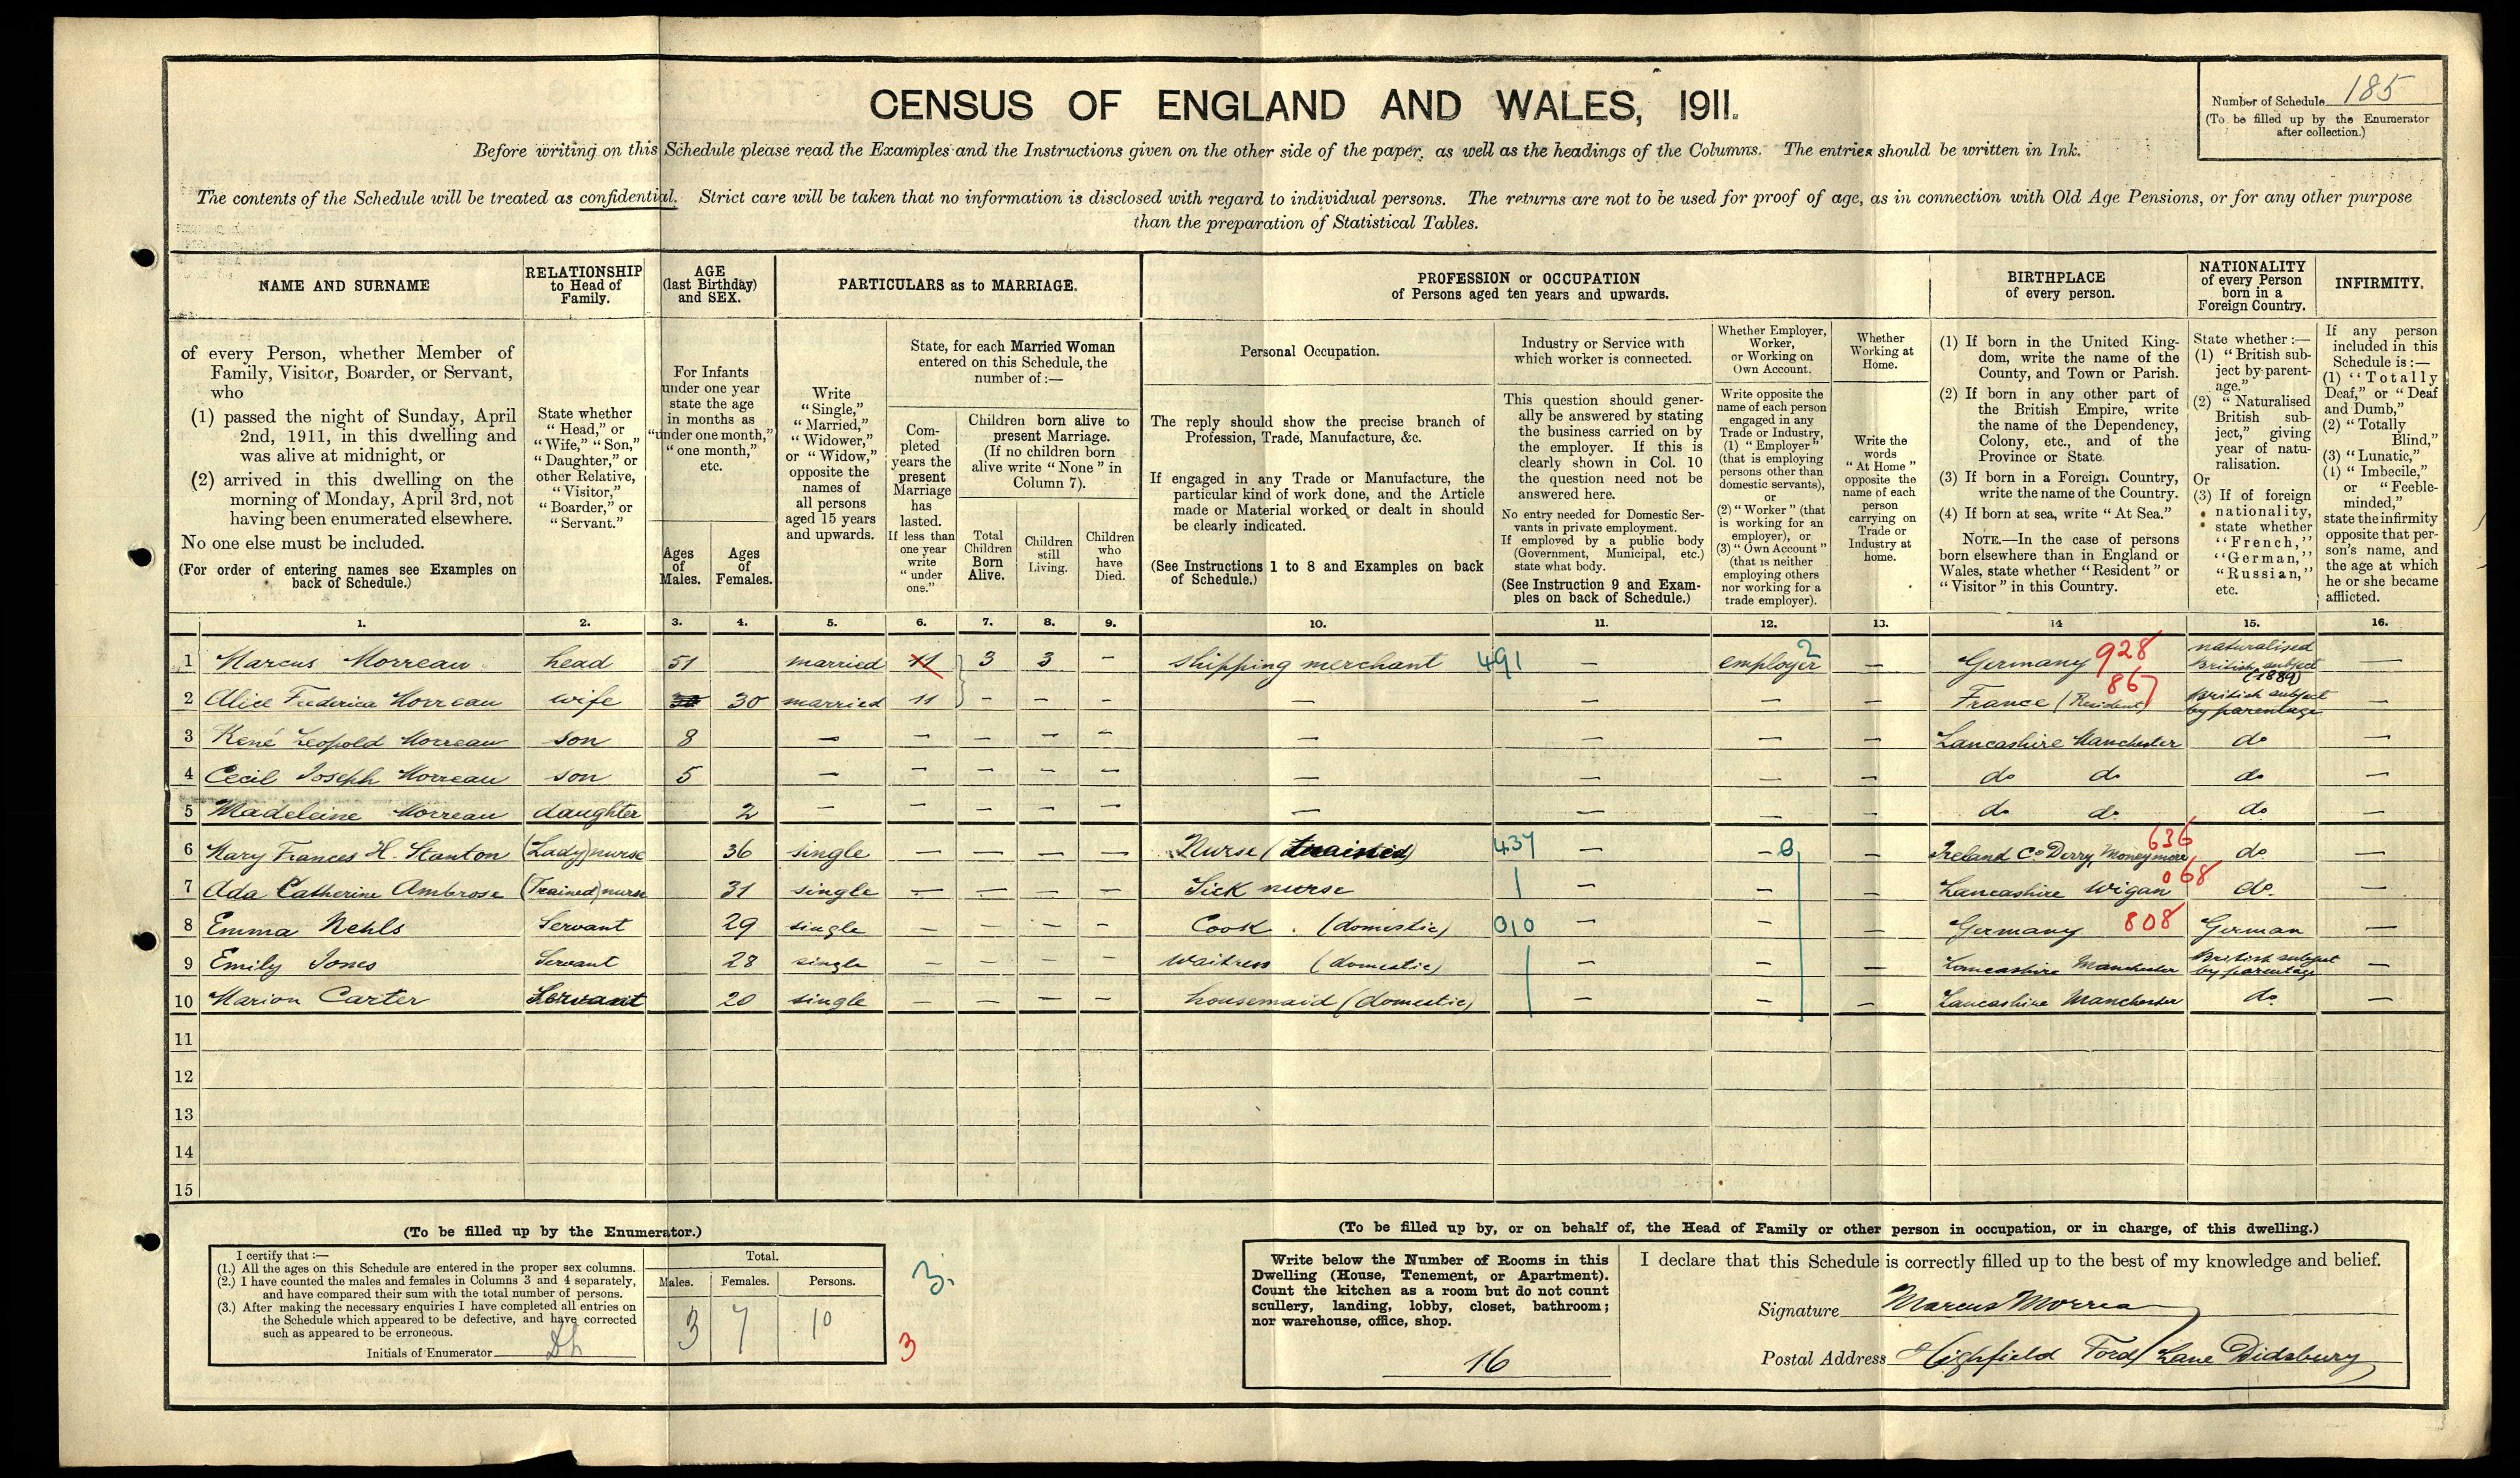 CENSUS OF ENGLAND AND WALES, 1911.
Number of Schedule 185
(To be filled up by the Enumerator
after collection.)
Before writing on this Schedule please read the Examples and the Instructions given on the other side of the paper, as well as the headings of the Columns. The entries should be written in Ink.
The contents of the Schedule will be treated as confidential. Strict care will be taken that no information is disclosed with regard to individual persons. The returns are not to be used for proof of age, as in connection with Old Age Pensions, or for any other purpose
than the preparation of Statistical Tables.
NAME AND SURNAME
of every Person, whether Member of
Family, Visitor, Boarder, or Servant,
who
(1) passed the night of Sunday, April
2nd, 1911, in this dwelling and
was alive at midnight, or
(2) arrived in this dwelling on the
morning of Monday, April 3rd, not
having been enumerated elsewhere.
No one else must be included.
(For order of entering names see Examples on
back of Schedule.)
RELATIONSHIP
to Head of
Family.
State whether
"Head," or
"Wife," "Son,"
"Daughter," or
other Relative,
"Visitor,"
"Boarder," or
"Servant."
AGE
(last Birthday)
and SEX.
For Infants
under one year
state the age
in months as
"under one month,"
"one month,"
etc.
Ages
of
Males.
Ages
of
Females.
PARTICULARS as to MARRIAGE.
Write
"Single,"
"Married,"
"Widower,"
or "Widow,"
opposite the
names of
all persons
aged 15 years
and upwards.
State, for each Married Woman
entered on this Schedule, the
number of :—
Com-
pleted
years the
present
Marriage
has
lasted.
If less than
one year
write
"under
one."
Children born alive to
present Marriage.
(If no children born
alive write "None" in
Column 7).
Total
Children
Born
Alive.
Children
still
Living.
Children
who
have
Died.
PROFESSION or OCCUPATION
of Persons aged ten years and upwards.
Personal Occupation.
The reply should show the precise branch of
Profession, Trade, Manufacture, &c.
If engaged in any Trade or Manufacture, the
particular kind of work done, and the Article
made or Material worked or dealt in should
be clearly indicated.
(See Instructions 1 to 8 and Examples on back
of Schedule.)
Industry or Service with
which worker is connected.
This question should gener-
ally be answered by stating
the business carried on by
the employer. If this is
clearly shown in Col. 10
the question need not be
answered here.
No entry needed for Domestic Ser-
vants in private employment.
If employed by a public body
(Government, Municipal, etc.)
state what body.
(See Instruction 9 and Exam-
ples on back of Schedule.)
Whether Employer,
Worker,
or Working on
Own Account.
Write opposite the
name of each person
engaged in any
Trade or Industry,
(1) "Employer"
(that is employing
persons other than
domestic servants),
or
(2) "Worker" (that
is working for an
employer), or
(3) "Own Account"
(that is neither
employing others
nor working for a
trade employer).
Whether
Working at
Home.
Write the
words
"At Home"
opposite the
name of each
person
carrying on
Trade or
Industry at
home.
BIRTHPLACE
of every person.
(1) If born in the United King-
dom, write the name of the
County, and Town or Parish.
(2) If born in any other part of
the British Empire, write
the name of the Dependency,
Colony, etc., and of the
Province or State.
(3) If born in a Foreign Country,
write the name of the Country.
(4) If born at sea, write "At Sea."
NOTE.—In the case of persons
born elsewhere than in England or
Wales, state whether "Resident" or
"Visitor" in this Country.
NATIONALITY
of every Person
born in a
Foreign Country.
State whether :—
(1) "British sub-
ject by parent-
age."
(2) "Naturalised
British sub-
ject," giving
year of natu-
ralisation.
Or
(3) If of foreign
nationality,
state whether
"French,"
"German,"
"Russian,"
etc.
INFIRMITY.
If any person
included in this
Schedule is :—
(1) "Totally
Deaf," or "Deaf
and Dumb,"
(2) "Totally
Blind,"
(3) "Lunatic,"
(4) "Imbecile,"
or "Feeble-
minded,"
state the infirmity
opposite that per-
son's name, and
the age at which
he or she became
afflicted.
1. 2. 3. 4. 5. 6. 7. 8. 9. 10. 11. 12. 13. 14 15. 16.
1 Marcus Morreau head 51 married 11 3 3 – shipping merchant 491 – employer 2 – Germany 928 naturalised British subject (1889) –
2 Alice Frederica Morreau wife 30 married 11 – – – – – – – France (Resident) 867 British subject by parentage –
3 René Leopold Morreau son 8 – – – – – – – – – Lancashire Manchester do –
4 Cecil Joseph Morreau son 5 – – – – – – – – – do do do –
5 Madeleine Morreau daughter 2 – – – – – – – – – do do do –
6 Mary Frances H. Stanton (Lady) nurse 36 single – – – – Nurse (trained) 437 – – 0 – Ireland Co Derry, Moneymore 636 do –
7 Ada Catherine Ambrose (Trained) nurse 31 single – – – – Sick nurse – – – Lancashire Wigan 068 do. –
8 Emma Nehls Servant 29 single – – – – Cook. (domestic) 010 – – – Germany 808 German –
9 Emily Jones Servant 28 single – – – – Waitress (domestic) – – – Lancashire Manchester British subject by parentage –
10 Marion Carter Servant 20 single – – – – housemaid (domestic) – – – Lancashire Manchester do. –
11
12
13
14
15
(To be filled up by the Enumerator.)
I certify that :—
(1.) All the ages on this Schedule are entered in the proper sex columns.
(2.) I have counted the males and females in Columns 3 and 4 separately,
and have compared their sum with the total number of persons.
(3.) After making the necessary enquiries I have completed all entries on
the Schedule which appeared to be defective, and have corrected
such as appeared to be erroneous.
Initials of Enumerator
Total.
Males. Females. Persons.
3 7 10
3.
3
(To be filled up by, or on behalf of, the Head of Family or other person in occupation, or in charge, of this dwelling.)
Write below the Number of Rooms in this
Dwelling (House, Tenement, or Apartment).
Count the kitchen as a room but do not count
scullery, landing, lobby, closet, bathroom;
nor warehouse, office, shop.
16
I declare that this Schedule is correctly filled up to the best of my knowledge and belief.
Signature Marcus Morreau
Postal Address Highfield Ford Lane Didsbury